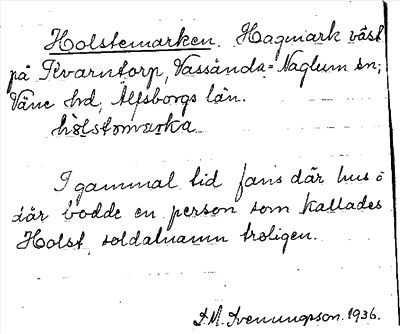 Holstemarken. Hagmark väst
på Kvarntorp, Vassända-Naglum sn;
Väne hd, Älfsborgs län.
hòlstomarka
I gammal tid fans där hus o
där bodde en person som kallades
Holst, soldatnamn troligen.
F.M. Svenungsson. 1936.